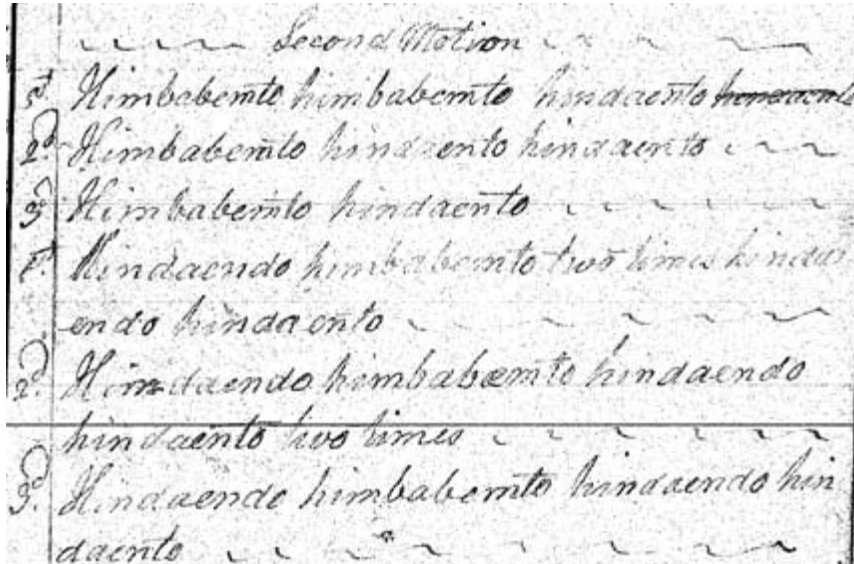 Second Motion
1st. Himbabemto himbabemto hindaento
2d. Himbabemto hindaento hindaento
3d. Himbabemto hindaento
1st. Hindaendo himbabemto two times hinda
endo hindaento
2d. Hindaendo himbabemto hindaendo
hindaento two times
3d. Hindaendo himbabemto hindaendo hin
daento